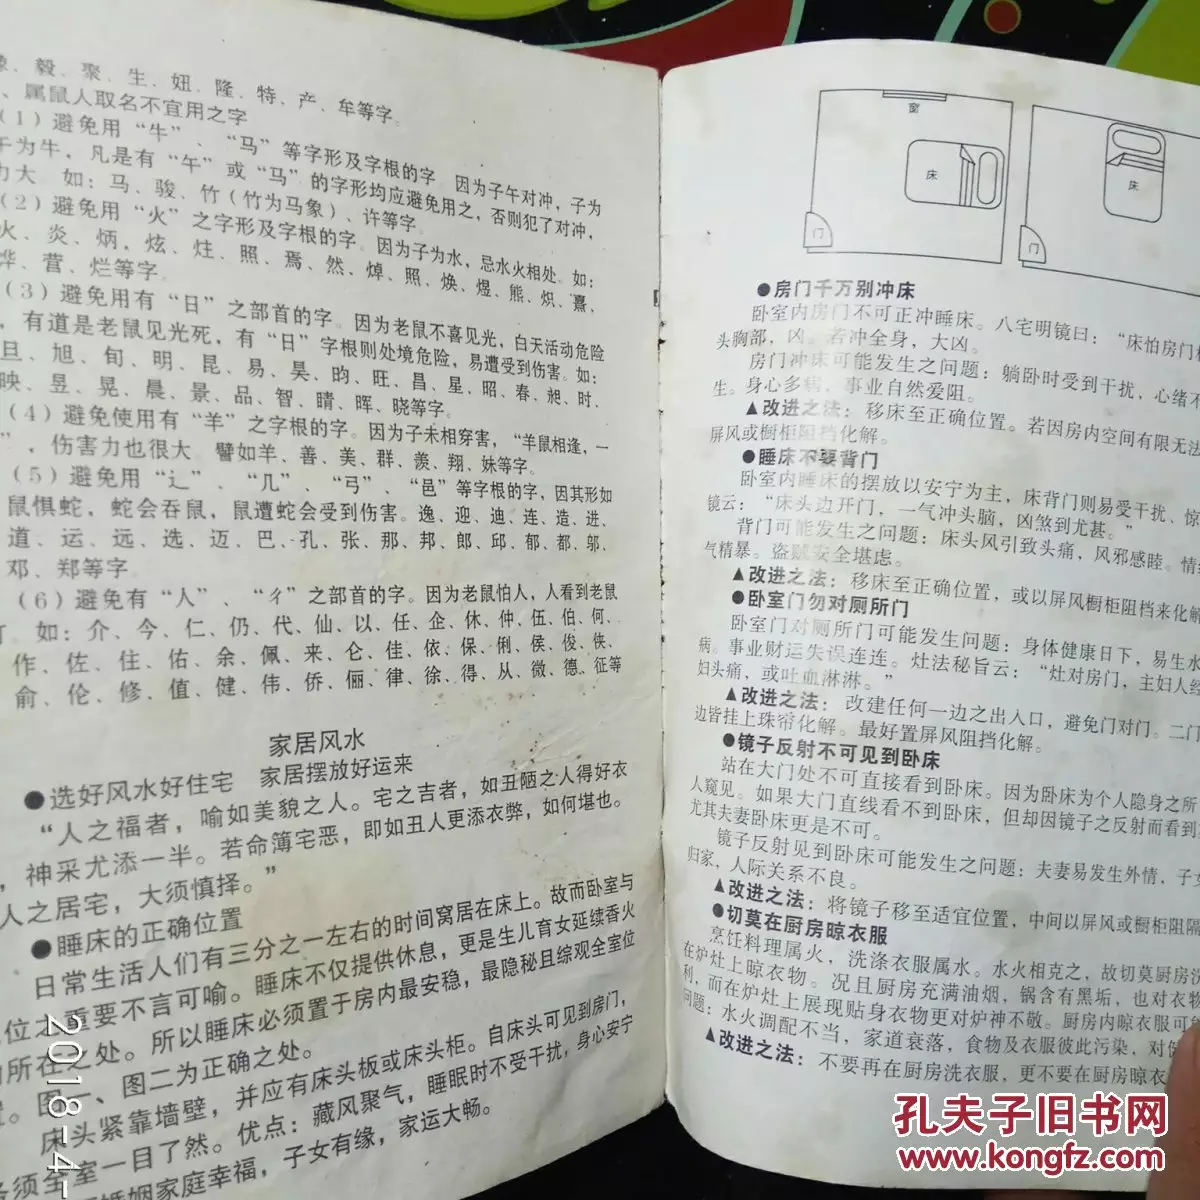 、毅、聚、生、妞、隆、特、产、牟等字。
、属鼠人取名不宜用之字
(1)避免用“牛”、“马”等字形及字根的字。因为子午对冲,子为
午为牛,凡是有“午”或“马”的字形均应避免用之,否则犯了对冲,
力大。如:马、骏、竹(竹为马象)、许等字。
(2)避免用“火”之字形及字根的字。因为子为水,忌水火相处。如:
火、炎、炳、炫、炷、照、焉、然、焯、照、焕、煜、熊、炽、熹、
烨、营、烂等字。
(3)避免用有“日”之部首的字。因为老鼠不喜见光,白天活动危险
,有道是老鼠见光死,有“日”字根则处境危险,易遭受到伤害。如:
旦、旭、旬、明、昆、易、昊、昀、旺、昌、星、昭、春、昶、时、
映、昱、晃、晨、景、品、智、晴、晖、晓等字。
(4)避免使用有“羊”之字根的字。因为子未相穿害,“羊鼠相逢,一
”,伤害力也很大。譬如羊、善、美、群、羡、翔、妹等字。
(5)避免用“辶”、“几”、“弓”、“邑”等字根的字,因其形如
鼠惧蛇,蛇会吞鼠,鼠遭蛇会受到伤害。逸、迎、迪、连、造、进、
道、运、远、选、迈、巴、孔、张、那、邦、郎、邱、郁、都、邬、
邓、郑等字。
(6)避免有“人”、“彳”之部首的字。因为老鼠怕人,人看到老鼠
打。如:介、今、仁、仍、代、仙、以、任、企、休、仲、伍、伯、何、
作、佐、住、佑、余、佩、来、仑、佳、依、保、俐、侯、俊、侠、
俞、伦、修、值、健、伟、侨、俪、律、徐、得、从、微、德、征等
家居风水
●选好风水好住宅 家居摆放好运来
“人之福者,喻如美貌之人。宅之吉者,如丑陋之人得好衣
,神采尤添一半。若命簿宅恶,即如丑人更添衣弊,如何堪也。
人之居宅,大须慎择。”
●睡床的正确位置
日常生活人们有三分之一左右的时间窝居在床上。故而卧室与
位之重要不言可喻。睡床不仅提供休息,更是生儿育女延续香火
的所在之处。所以睡床必须置于房内最安稳,最隐秘且综观全室位
。图一、图二为正确之处。
床头紧靠墙壁,并应有床头板或床头柜。自床头可见到房门,
须全室一目了然。优点:藏风聚气,睡眠时不受干扰,身心安宁
婚姻家庭幸福,子女有缘,家运大畅。
窗
床
门
床
门
●房门千万别冲床
卧室内房门不可正冲睡床。八宅明镜曰:“床怕房门
头胸部,凶。若冲全身,大凶。
房门冲床可能发生之问题:躺卧时受到干扰,心绪不
生。身心多病,事业自然爱阻。
▲改进之法:移床至正确位置。若因房内空间有限无法
屏风或橱柜阻挡化解。
●睡床不要背门
卧室内睡床的摆放以安宁为主,床背门则易受干扰、惊
镜云:“床头边开门,一气冲头脑,凶煞到尤甚。”
背门可能发生之问题:床头风引致头痛,风邪感睦。情绪
气精暴。盗贼安全堪虑。
▲改进之法:移床至正确位置,或以屏风橱柜阻挡来化解
●卧室门勿对厕所门
卧室门对厕所门可能发生问题:身体健康日下,易生水
病。事业财运失误连连。灶法秘旨云:“灶对房门,主妇人经
妇头痛,或吐血淋淋。”
▲改进之法:改建任何一边之出入口,避免门对门。二门
边皆挂上珠帘化解。最好置屏风阻挡化解。
●镜子反射不可见到卧床
站在大门处不可直接看到卧床。因为卧床为个人隐身之所
人窥见。如果大门直线看不到卧床,但却因镜子之反射而看到
尤其夫妻卧床更是不可。
镜子反射见到卧床可能发生之问题:夫妻易发生外情,子女
归家,人际关系不良。
▲改进之法:将镜子移至适宜位置,中间以屏风或橱柜阻隔
●切莫在厨房晾衣服
烹饪料理属火,洗涤衣服属水。水火相克之,故切莫厨房洗
在炉灶上晾衣物。况且厨房充满油烟,锅含有黑垢,也对衣物
利,而在炉灶上展现贴身衣物更对炉神不敬。厨房内晾衣服可能
问题:水火调配不当,家道衰落,食物及衣服彼此污染,对健
▲改进之法:不要再在厨房洗衣服,更不要在厨房晾衣
2018-4-
孔夫子旧书网
www.kongfz.com